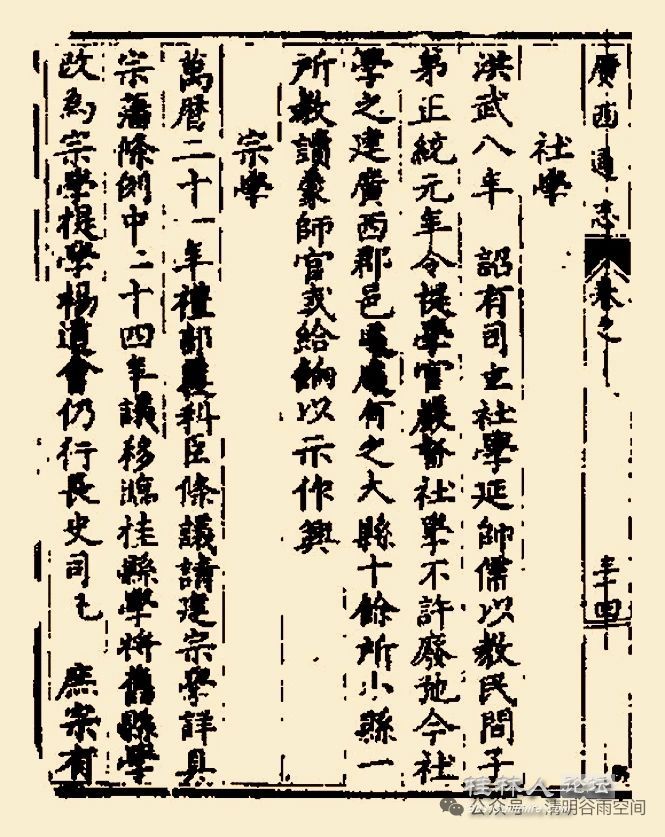 廣西通志 卷之
社學
洪武八年 詔有司立社學延師儒以教民間子
弟正統元年令提學官嚴督社學不許廢弛今社
學之建廣西郡邑有之大縣十餘所小縣一
所教讀蒙師官或給餉以示作興
宗學
萬曆二十一年禮部科臣條議請建宗學詳具
宗藩條例中二十四年議移臨桂縣學將舊縣學
改為宗學提學楊道會仍行長史司 庶宗有
桂林人论坛
公众号·清明谷雨空间